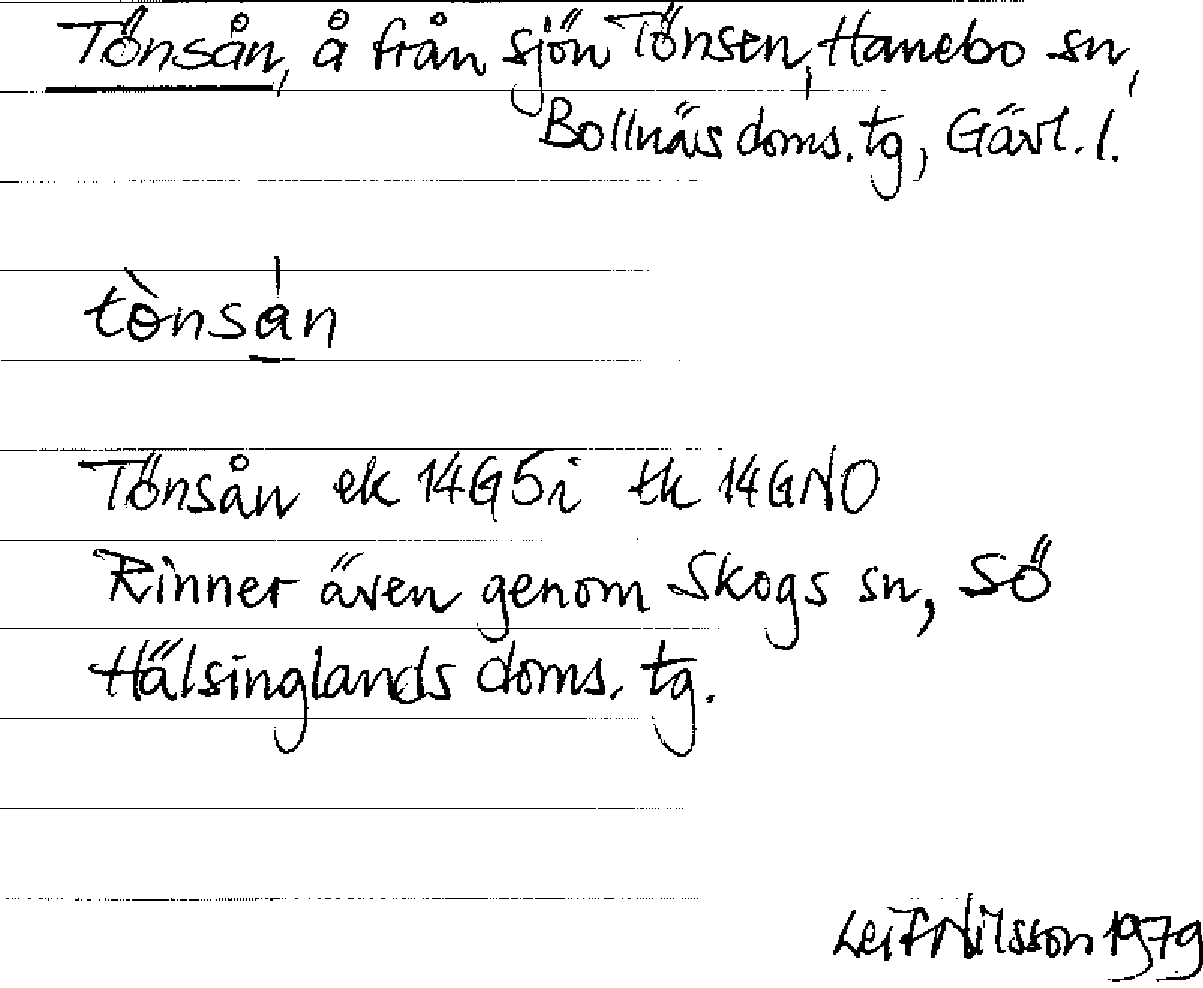 Tönsån, å från sjön Tönsen, Hanebo sn,
Bollnäs doms. tg, Gävl. l.
tɵ̀nsa̱̍n
Tönsån ek 14G5i tk 14GNO
Rinner även genom Skogs sn, Sö
Hälsinglands doms. tg.
Leif Nilsson 1979